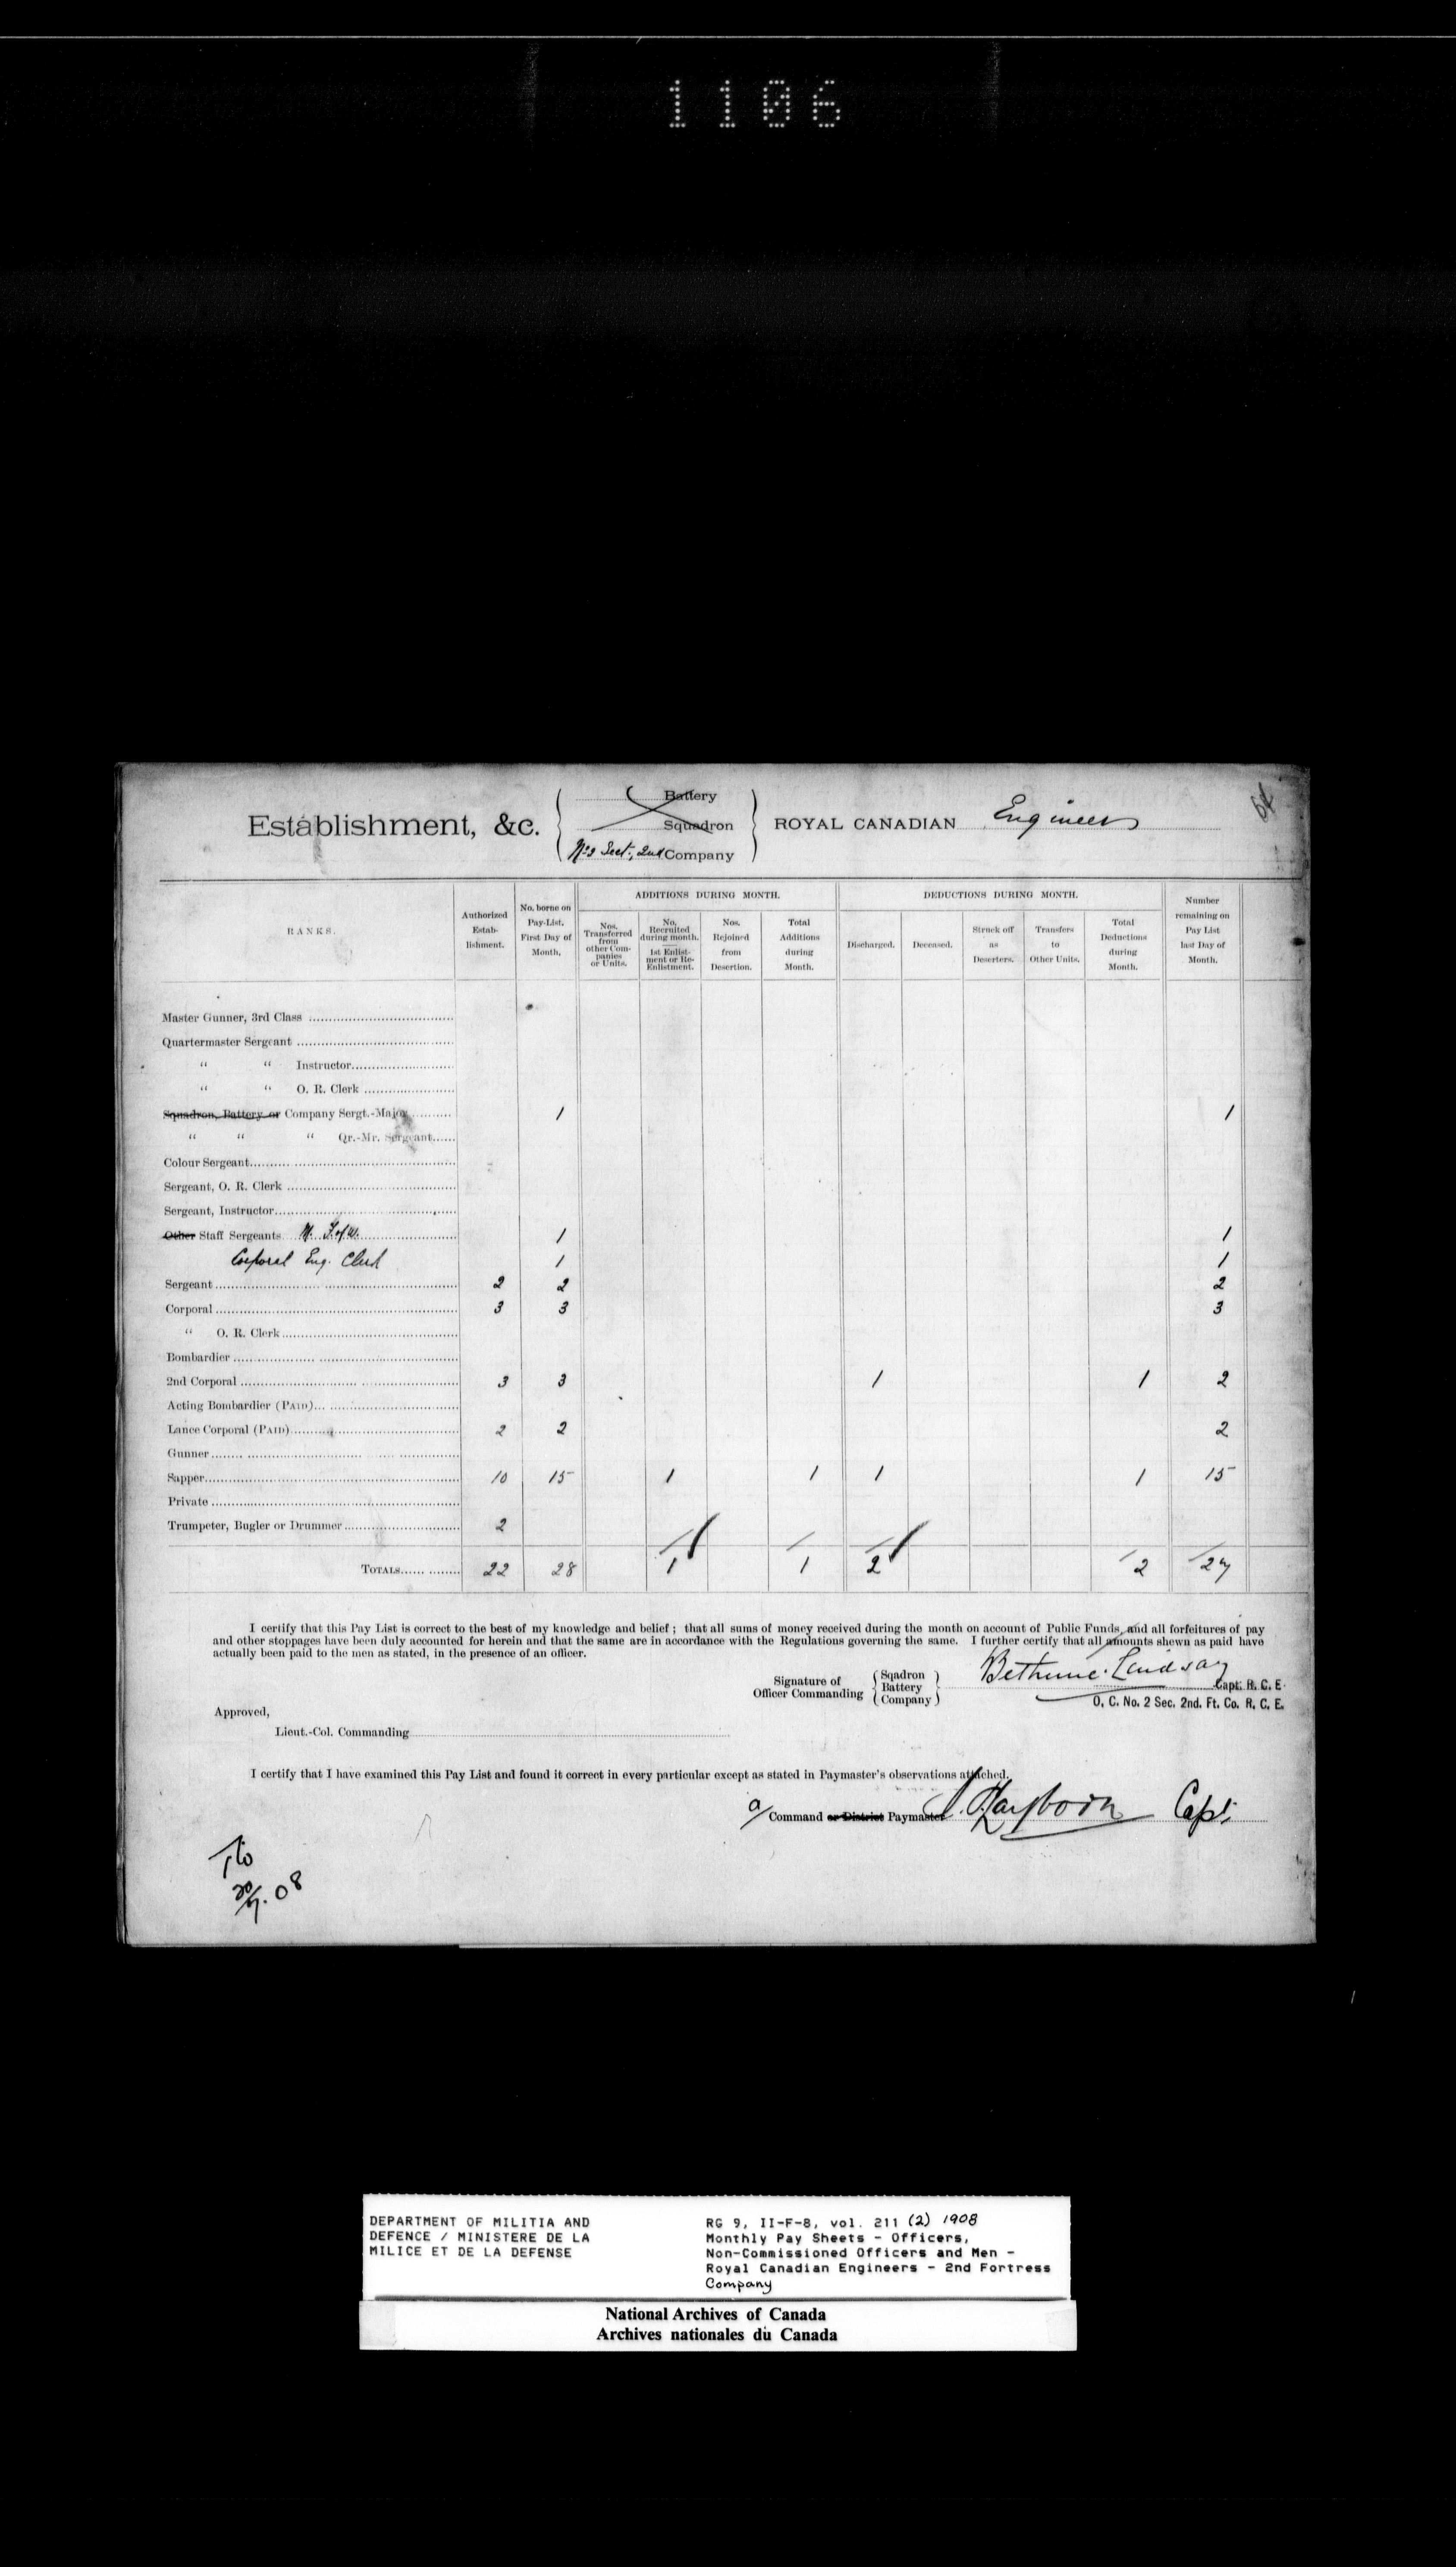 1106
64
Establishment, &c. Battery
Squadron
Nº 2 Sect., 2nd Company
ROYAL CANADIAN Engineers
RANKS. Authorized Estab-lishment. No. borne on Pay-List, First Day of Month. ADDITIONS DURING MONTH. DEDUCTIONS DURING MONTH. Number remaining on Pay List last Day of Month.
Nos. Transferred from other Com-panies or Units. No. Recruited during month. 1st Enlist-ment or Re-Enlistment. Nos. Rejoined from Desertion. Total Additions during Month. Discharged. Deceased. Struck off as Deserters. Transfers to Other Units. Total Deductions during Month.
Master Gunner, 3rd Class
Quartermaster Sergeant
“ “ Instructor
“ “ O. R. Clerk
Squadron, Battery or Company Sergt.-Major 1 1
“ “ “ Qr.-Mr. Sergeant
Colour Sergeant
Sergeant, O. R. Clerk
Sergeant, Instructor
Other Staff Sergeants M. F. of W. 1 1
Corporal Eng. Clerk 1 1
Sergeant 2 2 2
Corporal 3 3 3
“ O. R. Clerk
Bombardier
2nd Corporal 3 3 1 1 2
Acting Bombardier (PAID)
Lance Corporal (PAID) 2 2 2
Gunner
Sapper 10 15 1 1 1 1 15
Private
Trumpeter, Bugler or Drummer 2
TOTALS 22 28 1 1 2 2 27
I certify that this Pay List is correct to the best of my knowledge and belief; that all sums of money received during the month on account of Public Funds, and all forfeitures of pay
and other stoppages have been duly accounted for herein and that the same are in accordance with the Regulations governing the same. I further certify that all amounts shewn as paid have
actually been paid to the men as stated, in the presence of an officer.
Signature of Officer Commanding Sqadron Battery Company Bethune Lindsay Capt. R. C. E.
O. C. No. 2 Sec. 2nd. Ft. Co. R. C. E.
Approved,
Lieut.-Col. Commanding
I certify that I have examined this Pay List and found it correct in every particular except as stated in Paymaster's observations attached.
a/ Command or District Paymaster Capt.
08
DEPARTMENT OF MILITIA AND
DEFENCE / MINISTERE DE LA
MILICE ET DE LA DEFENSE
RG 9, II-F-8, vol. 211 (2) 1908
Monthly Pay Sheets - Officers,
Non-Commissioned Officers and Men -
Royal Canadian Engineers - 2nd Fortress
Company
National Archives of Canada
Archives nationales du Canada